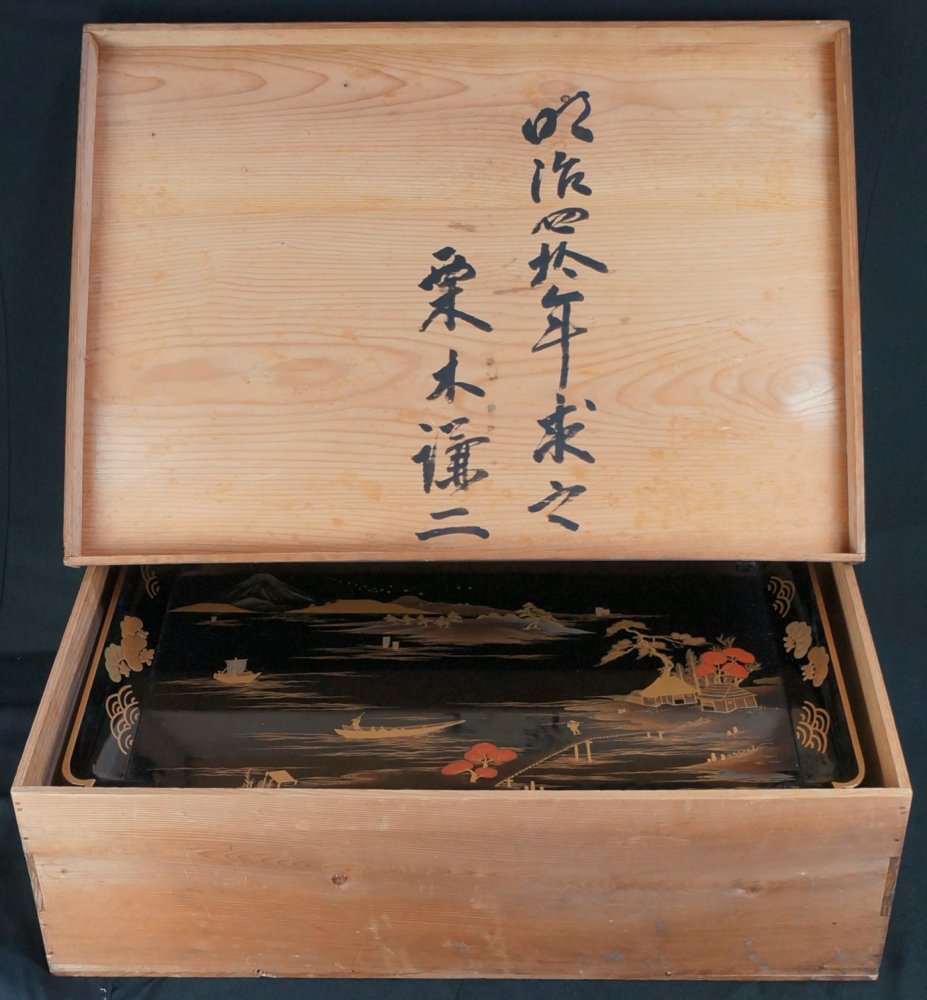 明治四拾年求之
栗木謙二